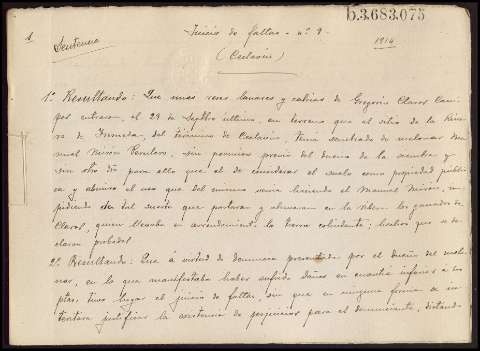 b.3.683.075
1
Sentencia
Juicio de faltas - nº 9
1914
(Ceclavin)
1º Resultando: Que unas reses lanares y cabrias de Gregorio Claros Cam
por entraron, el 29 de Septbre último, en terreno que al sitio de la
de del término de Ceclavin, tenía sembrado de melonar Ma
nuel Mirón Perulero, sin permiso previo del dueño de la siembra y
sin otro para ello que el de considerar el suelo como propiedad públi
ca y abusivo el uso que del mismo venía haciendo el Manuel Mirón, im
pidiendo de tal suerte que pastaran y abrevaran en la ribera los ganados de
Claros, quien llevaba en arrendamiento la tierra colindante; hechos que se de
claran probados
2º Resultando: Que á virtud de denuncia presentada por el dueño del melo
nar, en la que manifestaba haber sufrido daños en cuantía inferior a
ptas, tuvo lugar el juicio de faltas, sin que en ninguna forma se in
tentara justificar la existencia de perjuicios para el denunciante, dictando